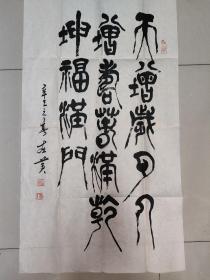 天增歲月人
增壽春滿乾
坤福滿門
辛丑之春